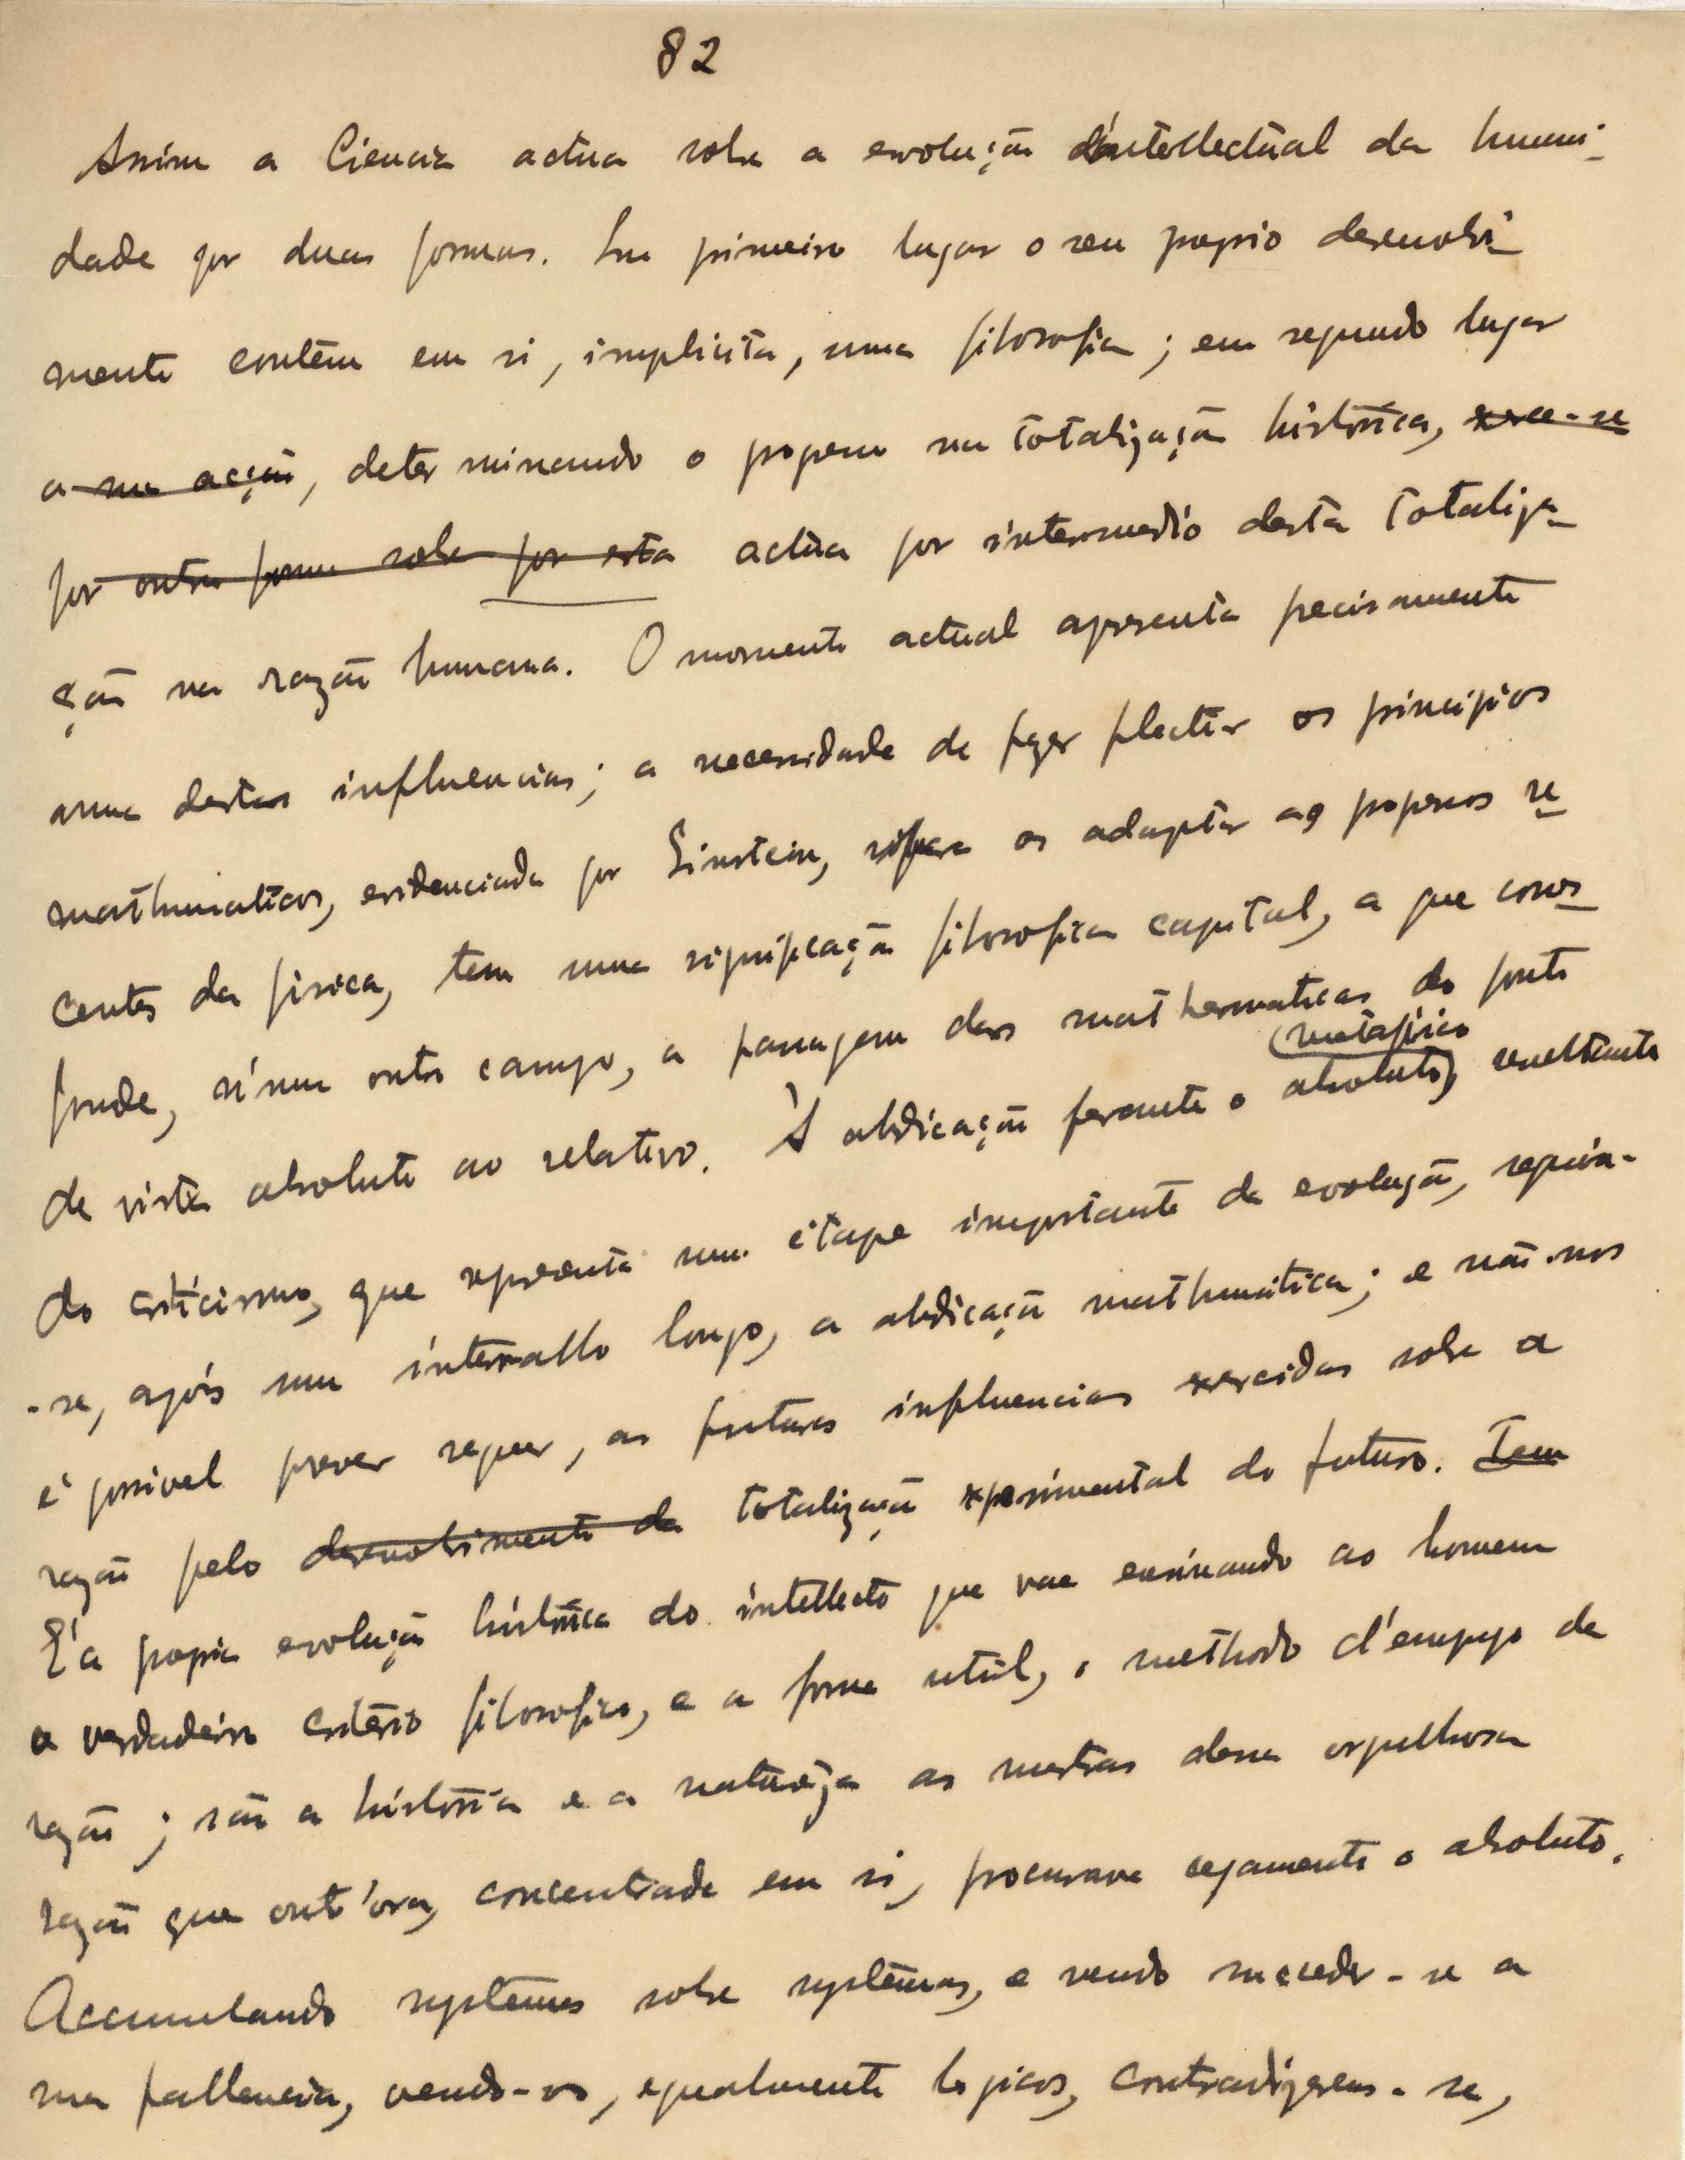 82
Assim a Ciencia actua sobre a evolução intellectual da humani-
dade por duas formas. Em primeiro lugar o seu proprio desenvolvi-
mento contêm em si, implicita, uma filosofia; em segundo lugar
a sua acção, determinando o progresso na totalização histórica, exerce-se
por outra forma sobre por esta actúa por intermedio desta totaliza-
ção na razão humana. O momento actual apresenta precisamente
uma destas influencias; a necessidade de fazer flectir os principios
mathematicos, evidenciada por Einstein, para os adaptar aos progressos re-
centes da fisica, tem uma significação filosofica capital, a que corres-
ponde, n'um outro campo, a passagem das mathematicas do ponto
de vista absoluto ao relativo. Á abdicação perante o absoluto (metafisico), resultante
do criticismo, que representa uma étape importante da evolução, seguiu-
-se, após um intervallo longo, a abdicação mathemática; e não-nos
é possivel prever sequer, as futuras influencias exercidas sobre a
razão pelo desenvolvimento da totalização experimental do futuro. Tem
É a propria evolução histórica do intellecto que vae ensinando ao homem
o verdadeiro critério filosofico, e a forma util, o methodo d'emprego da
razão; são a história e a natureza as mestras dessa orgulhosa
razão que outr'ora, concentrada em si, procurava cegamente o absoluto.
Accumulando systemas sobre systemas, e vendo succeder-se a
sua fallencia, vendo-os, egualmente logicos, contradizerem-se,